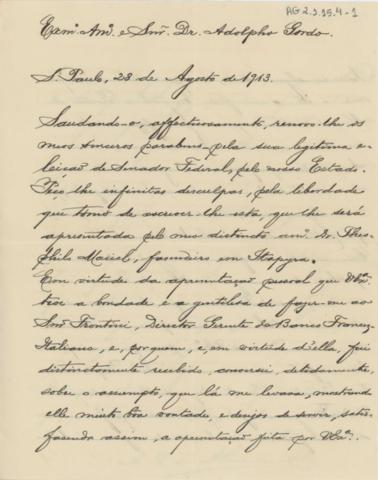 AG 2.1.15.4-1
Exmº Amº. e Snr. Dr. Adolpho Gordo.
S. Paulo, 28 de Agosto de 1913.
Saudando-o, affectuosamente, renovo-lhe os
meus sinceros parabens pela sua legitima e-
leição de Senador Federal, pelo nosso Estado.
Peço-lhe infinitas desculpas, pela liberdade
que tomo de escrever-lhe esta, que lhe será
apresentada pelo meu distincto amº. Dr. Theo-
philo Maciel, fazendeiro em Itapyra.
Em virtude da apresentação pessoal que VExª.
teve a bondade e a gentileza de fazer-me ao
Snr. Frontini, Director Gerente do Banco Francez-
Italiano, e, por quem, e, em virtude d'ella, fui
distinctamente recebido, conversei, detidamente,
sobre o assumpto, que lá me levava, mostrando
elle muito bôa vontade, e desejos de servir, satis-
fazendo assim, a apresentação feita por VExª.